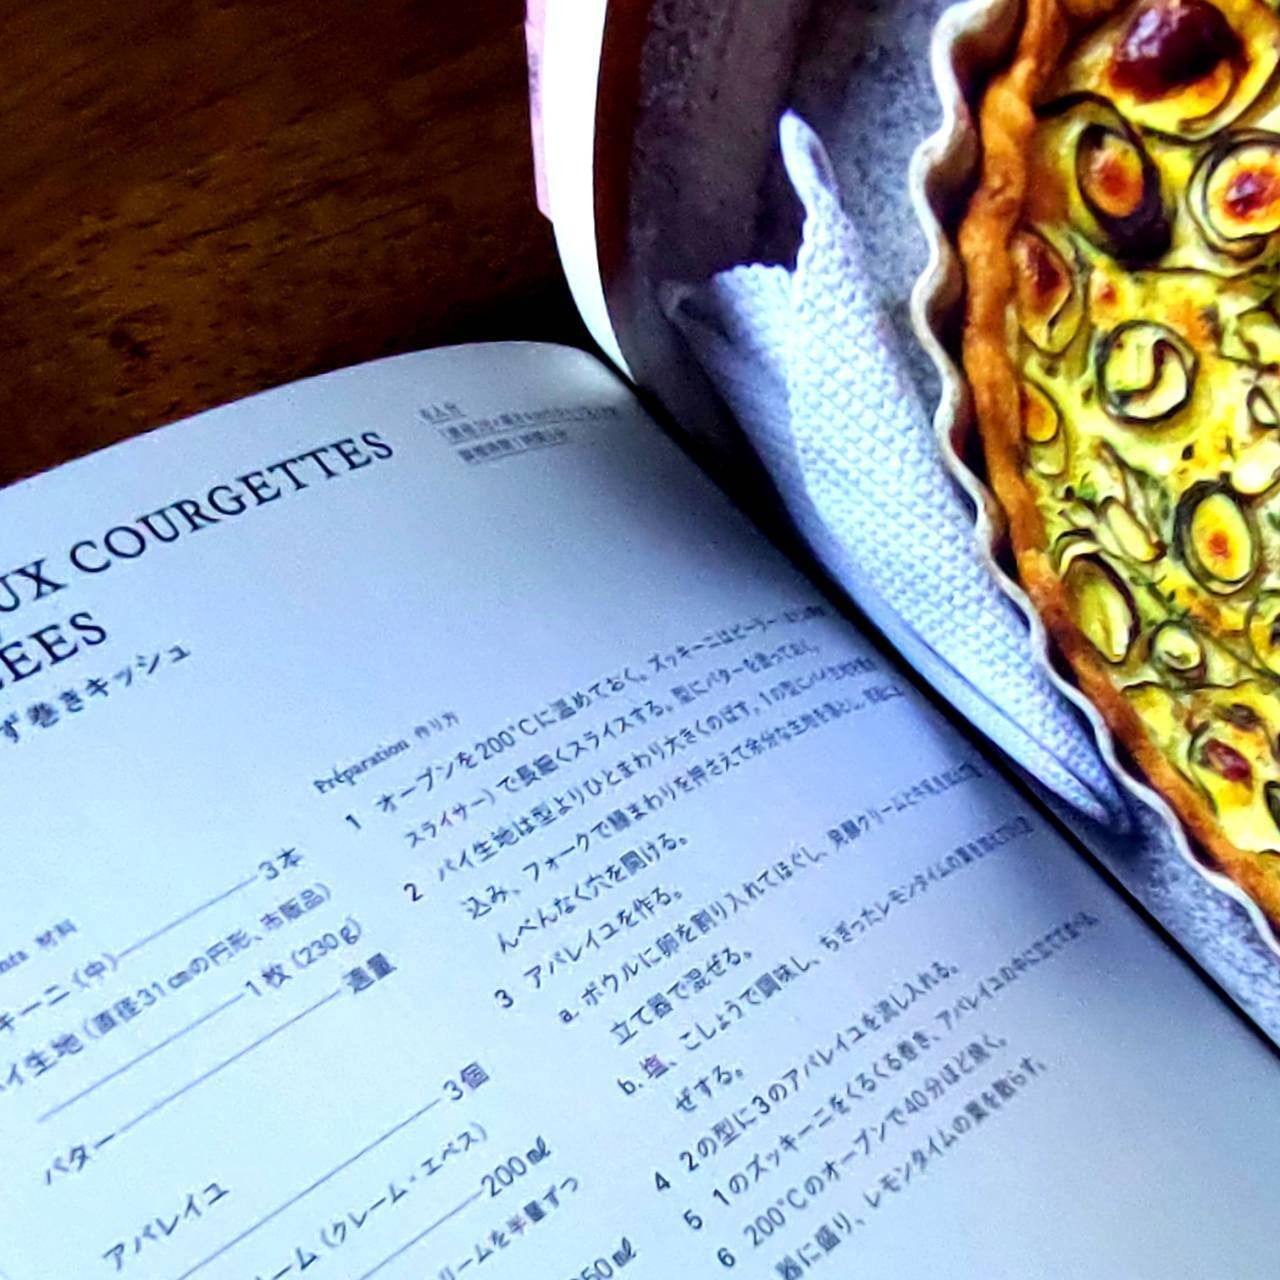 UX COURGETTES
ÉES
ず巻きキッシュ
6人分
Préparation 作り方
1 オーブンを200℃に温めておく。ズッキーニはピーラー
スライサー）で長細くスライスする。型にバターを塗っておく。
2 パイ生地は型よりひとまわり大きくのばす。1の型にパイ生地を
込み、フォークで縁まわりを押さえて余分な生地を落とし、
んべんなく穴を開ける。
3 アパレイユを作る。
a. ボウルに卵を割り入れてほぐし、発酵クリームと
立て器で混ぜる。
b. 塩、こしょうで調味し、ちぎったレモンタイムの葉を
ぜする。
4 2の型に3のアパレイユを流し入れる。
5 1のズッキーニをくるくる巻き、アパレイユの中に立てて並べる。
6 200℃のオーブンで40分ほど焼く。
器に盛り、レモンタイムの葉を散らす。
材料
キーニ（中）3本
イ生地（直径31cmの円形、市販品）
1枚（230g）
バター 適量
アパレイユ
3個
ーム（クレーム・エペス）
200ml
リームを半量ずつ
50ml